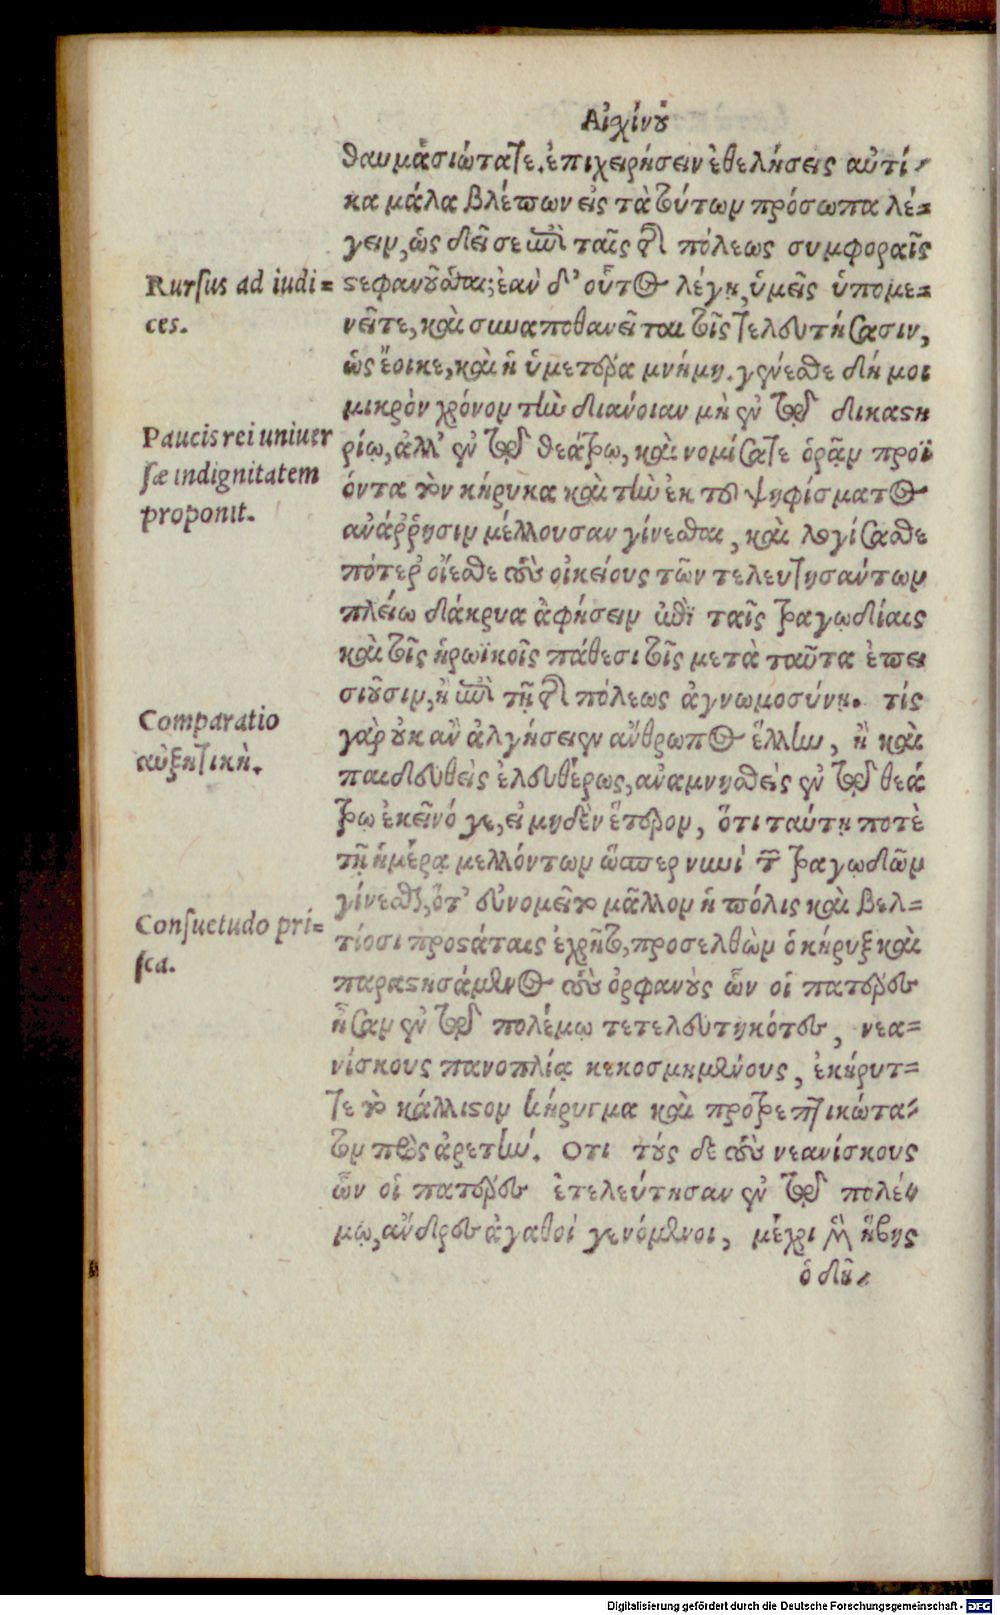 Αἰχίνου
θαυμασιώτατε. ἐπιχειρήσειν ἐθελήσεις αὐτί-
κα μάλα βλέπων εἰς τὰ τούτων πρόσωπα λέ-
γειν, ὡς δεῖ σε ἐπὶ ταῖς τῆς πόλεως συμφοραῖς
Rursus ad iudi= στεφανοῦσθαι; ἐὰν δ' οὗτος λέγῃ, ὑμεῖς ὑπομε-
ces. νεῖτε, καὶ συναποθανεῖται τοῖς τελευτήσασιν,
ὡς ἔοικε, καὶ ἡ ὑμετέρα μνήμη. γένεσθε δή μοι
μικρὸν χρόνον τὴν διάνοιαν μὴ ἐν τῷ δικαστη
Paucis rei uniuer ρίῳ, ἀλλ' ἐν τῷ θεάτρῳ, καὶ νομίσατε ὁρᾷν προϊ
sæ indignitatem όντα τὸν κήρυκα καὶ τὴν ἐκ τοῦ ψηφίσματος
proponit. ἀνάῤῥησιν μέλλουσαν γίνεσθαι, καὶ λογίσασθε
πότερ' οἴεσθε τοὺς οἰκείους τῶν τελευτησάντων
πλείω δάκρυα ἀφήσειν ἐπὶ ταῖς τραγῳδίαις
καὶ τοῖς ἡρωϊκοῖς πάθεσι τοῖς μετὰ ταῦτα ἐπει
σιοῦσιν, ἢ ἐπὶ τῇ τῆς πόλεως ἀγνωμοσύνῃ. τίς
Comparatio γὰρ οὐκ ἂν ἀλγήσειεν ἄνθρωπος ἕλλην, ἢ καὶ
αὐξητική. παιδευθεὶς ἐλευθέρως, ἀναμνησθεὶς ἐν τῷ θεά
τρῳ ἐκεῖνό γε, εἰ μηδὲν ἕτερον, ὅτι ταύτῃ ποτὲ
τῇ ἡμέρᾳ μελλόντων ὥσπερ νυνὶ τῶν τραγῳδιῶν
γίνεσθαι, ὅτ' εὐνομεῖτο μᾶλλον ἡ πόλις καὶ βελ-
Consuetudo pri= τίοσι προστάταις ἐχρῆτο, προσελθὼν ὁ κήρυξ καὶ
sca. παραστησάμενος τοὺς ὀρφανοὺς ὧν οἱ πατέρες
ἦσαν ἐν τῷ πολέμῳ τετελευτηκότες, νεα-
νίσκους πανοπλίᾳ κεκοσμημένους, ἐκήρυτ-
τε τὸ κάλλιστον κήρυγμα καὶ προτρεπτικώτα-
τον πρὸς ἀρετήν. Οτι τούς δε τοὺς νεανίσκους
ὧν οἱ πατέρες ἐτελεύτησαν ἐν τῷ πολέ-
μῳ, ἄνδρες ἀγαθοί γενόμενοι, μέχρι μὲν ἥβης
ὁ δῆ-
Digitalisierung gefördert durch die Deutsche Forschungsgemeinschaft - DFG